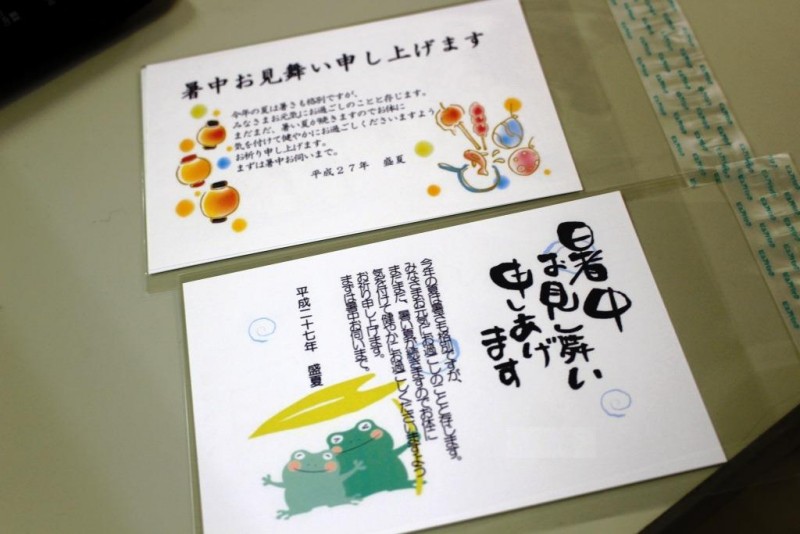 暑中お見舞い申し上げます
今年の夏は暑さも格別ですが、
みなさまお元気にお過ごしのことと存じます。
まだまだ、暑い夏が続きますのでお体に
気を付けて健やかにお過ごしくださいますよう
お祈り申し上げます。
まずは暑中お伺いまで。
平成27年 盛夏
暑中
お見舞い
申しあげ
ます
今年の夏は暑さも格別ですが、
みなさまお元気にお過ごしのことと存じます。
まだまだ、暑い夏が続きますのでお体に
気を付けて健やかにお過ごしくださいますよう
お祈り申し上げます。
まずは暑中お伺いまで。
平成二十七年 盛夏